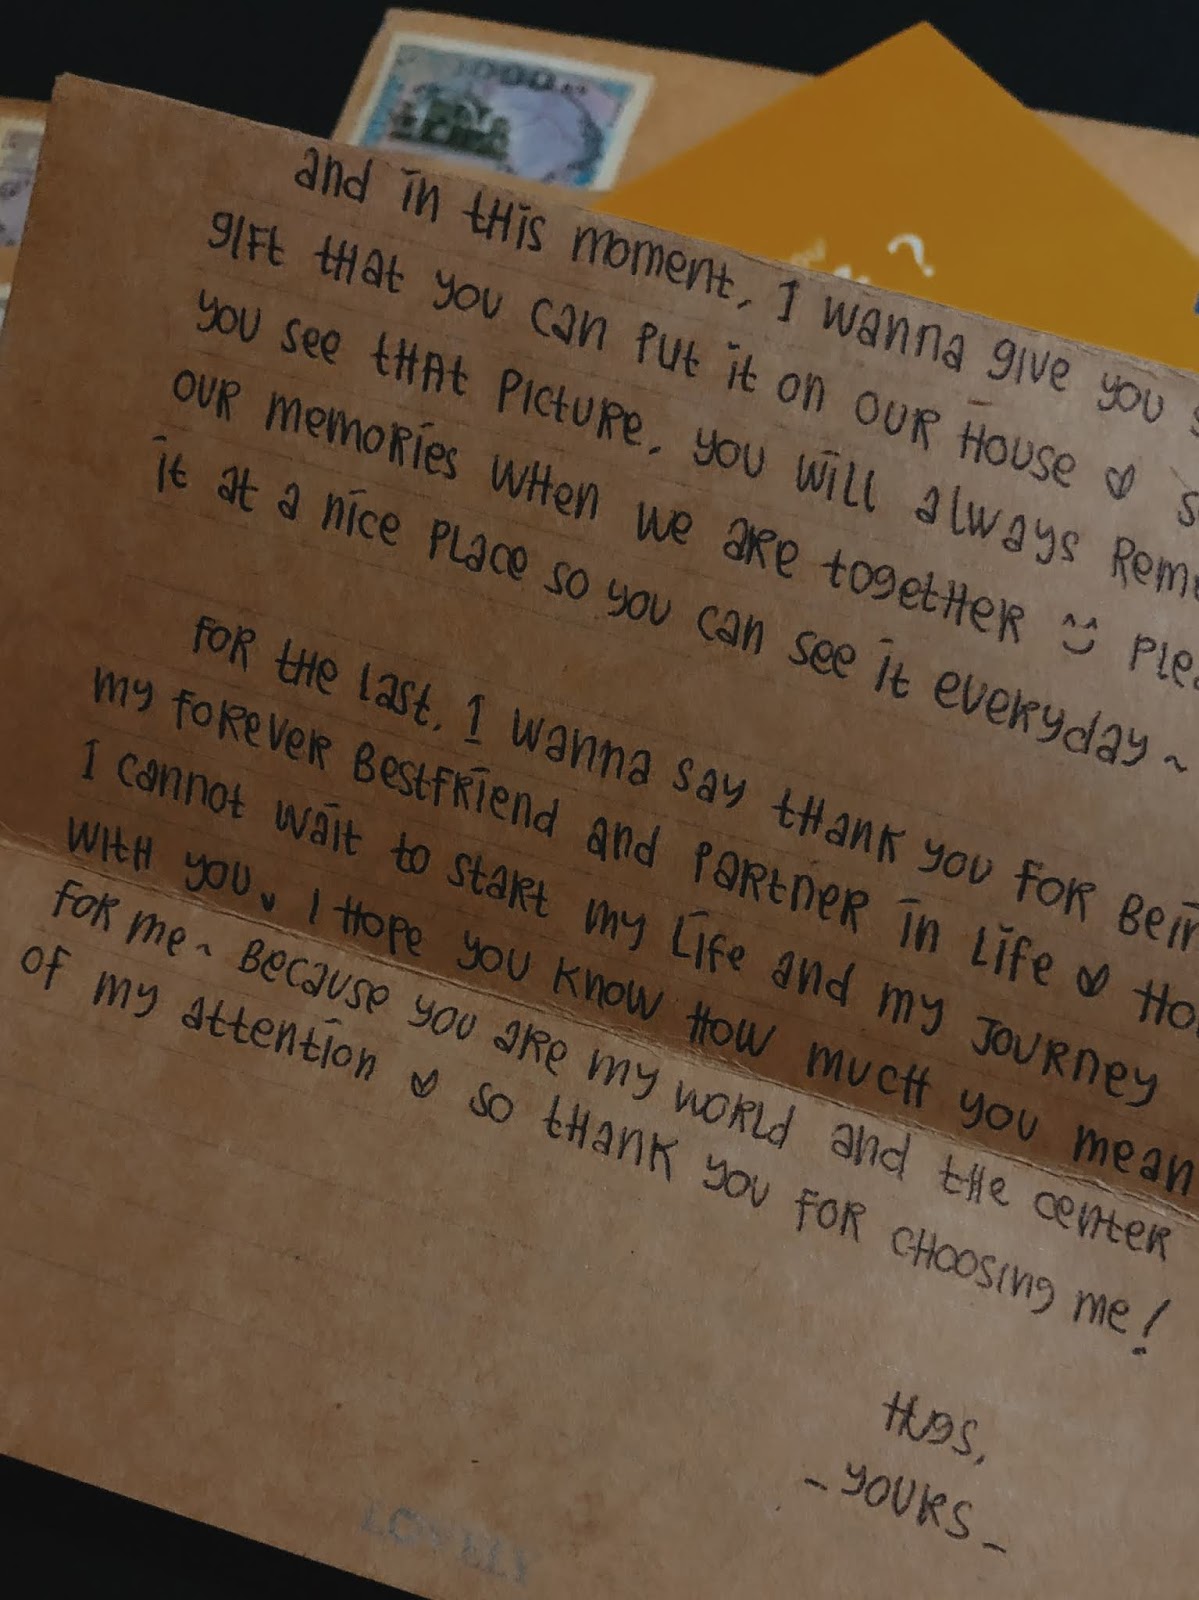 1000
and in this moment, I wanna give you
gift that you can put it on our house ♡
you see that picture, you will always
our memories when we are together ^_^
it at a nice place so you can see it everyday ~
for the last, I wanna say thank you for
my forever bestfriend and partner in life ♡
I cannot wait to start my life and my journey
with you. I hope you know how much you mean
for me ~ Because you are my world and the center
of my attention ♡ so thank you for choosing me!
Hugs,
- Yours -
LOVELY